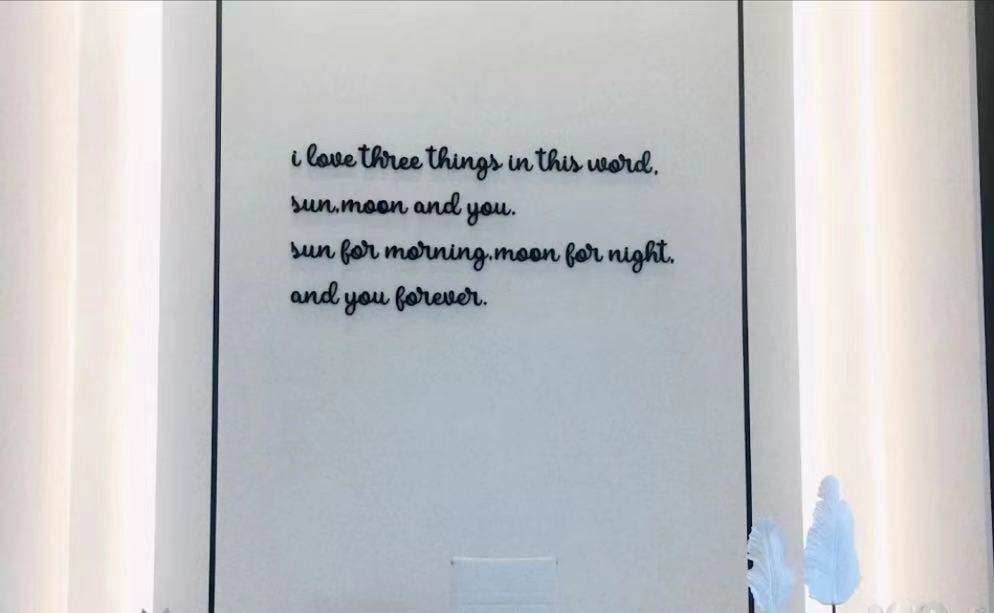 i love three things in this word,
sun,moon and you.
sun for morning,moon for night,
and you forever.